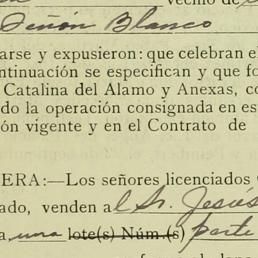 vecino de
Zenón Blanco
arse y expusieron: que celebran el
ntinuación se especifican y que fo
Catalina del Alamo y Anexas, co
do la operación consignada en es
ón vigente y en el Contrato de
ERA:—Los señores licenciados
ado, venden al Sr. Jesús
a una lote(s) Núm.(s) parte